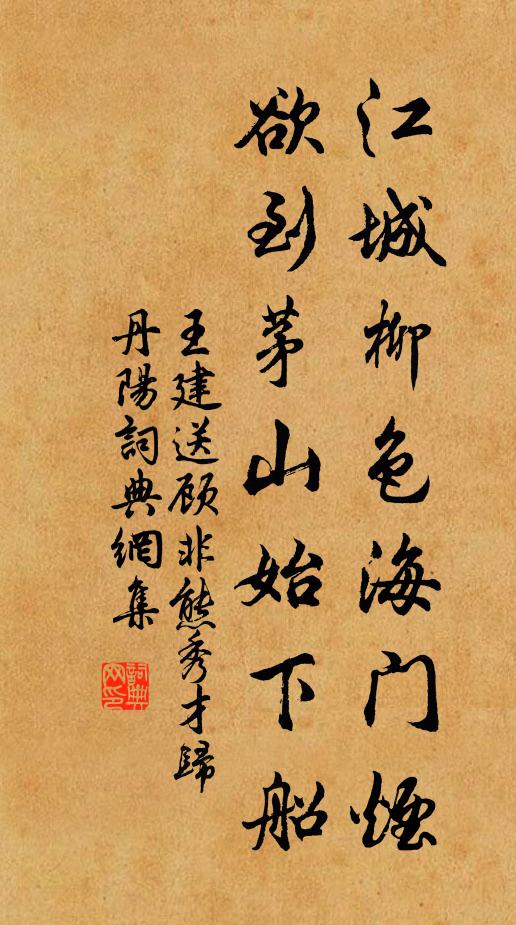 江城柳色海门烟
欲到茅山始下船
王建送顾非熊秀才歸
丹陽詞典網集
詞典網印